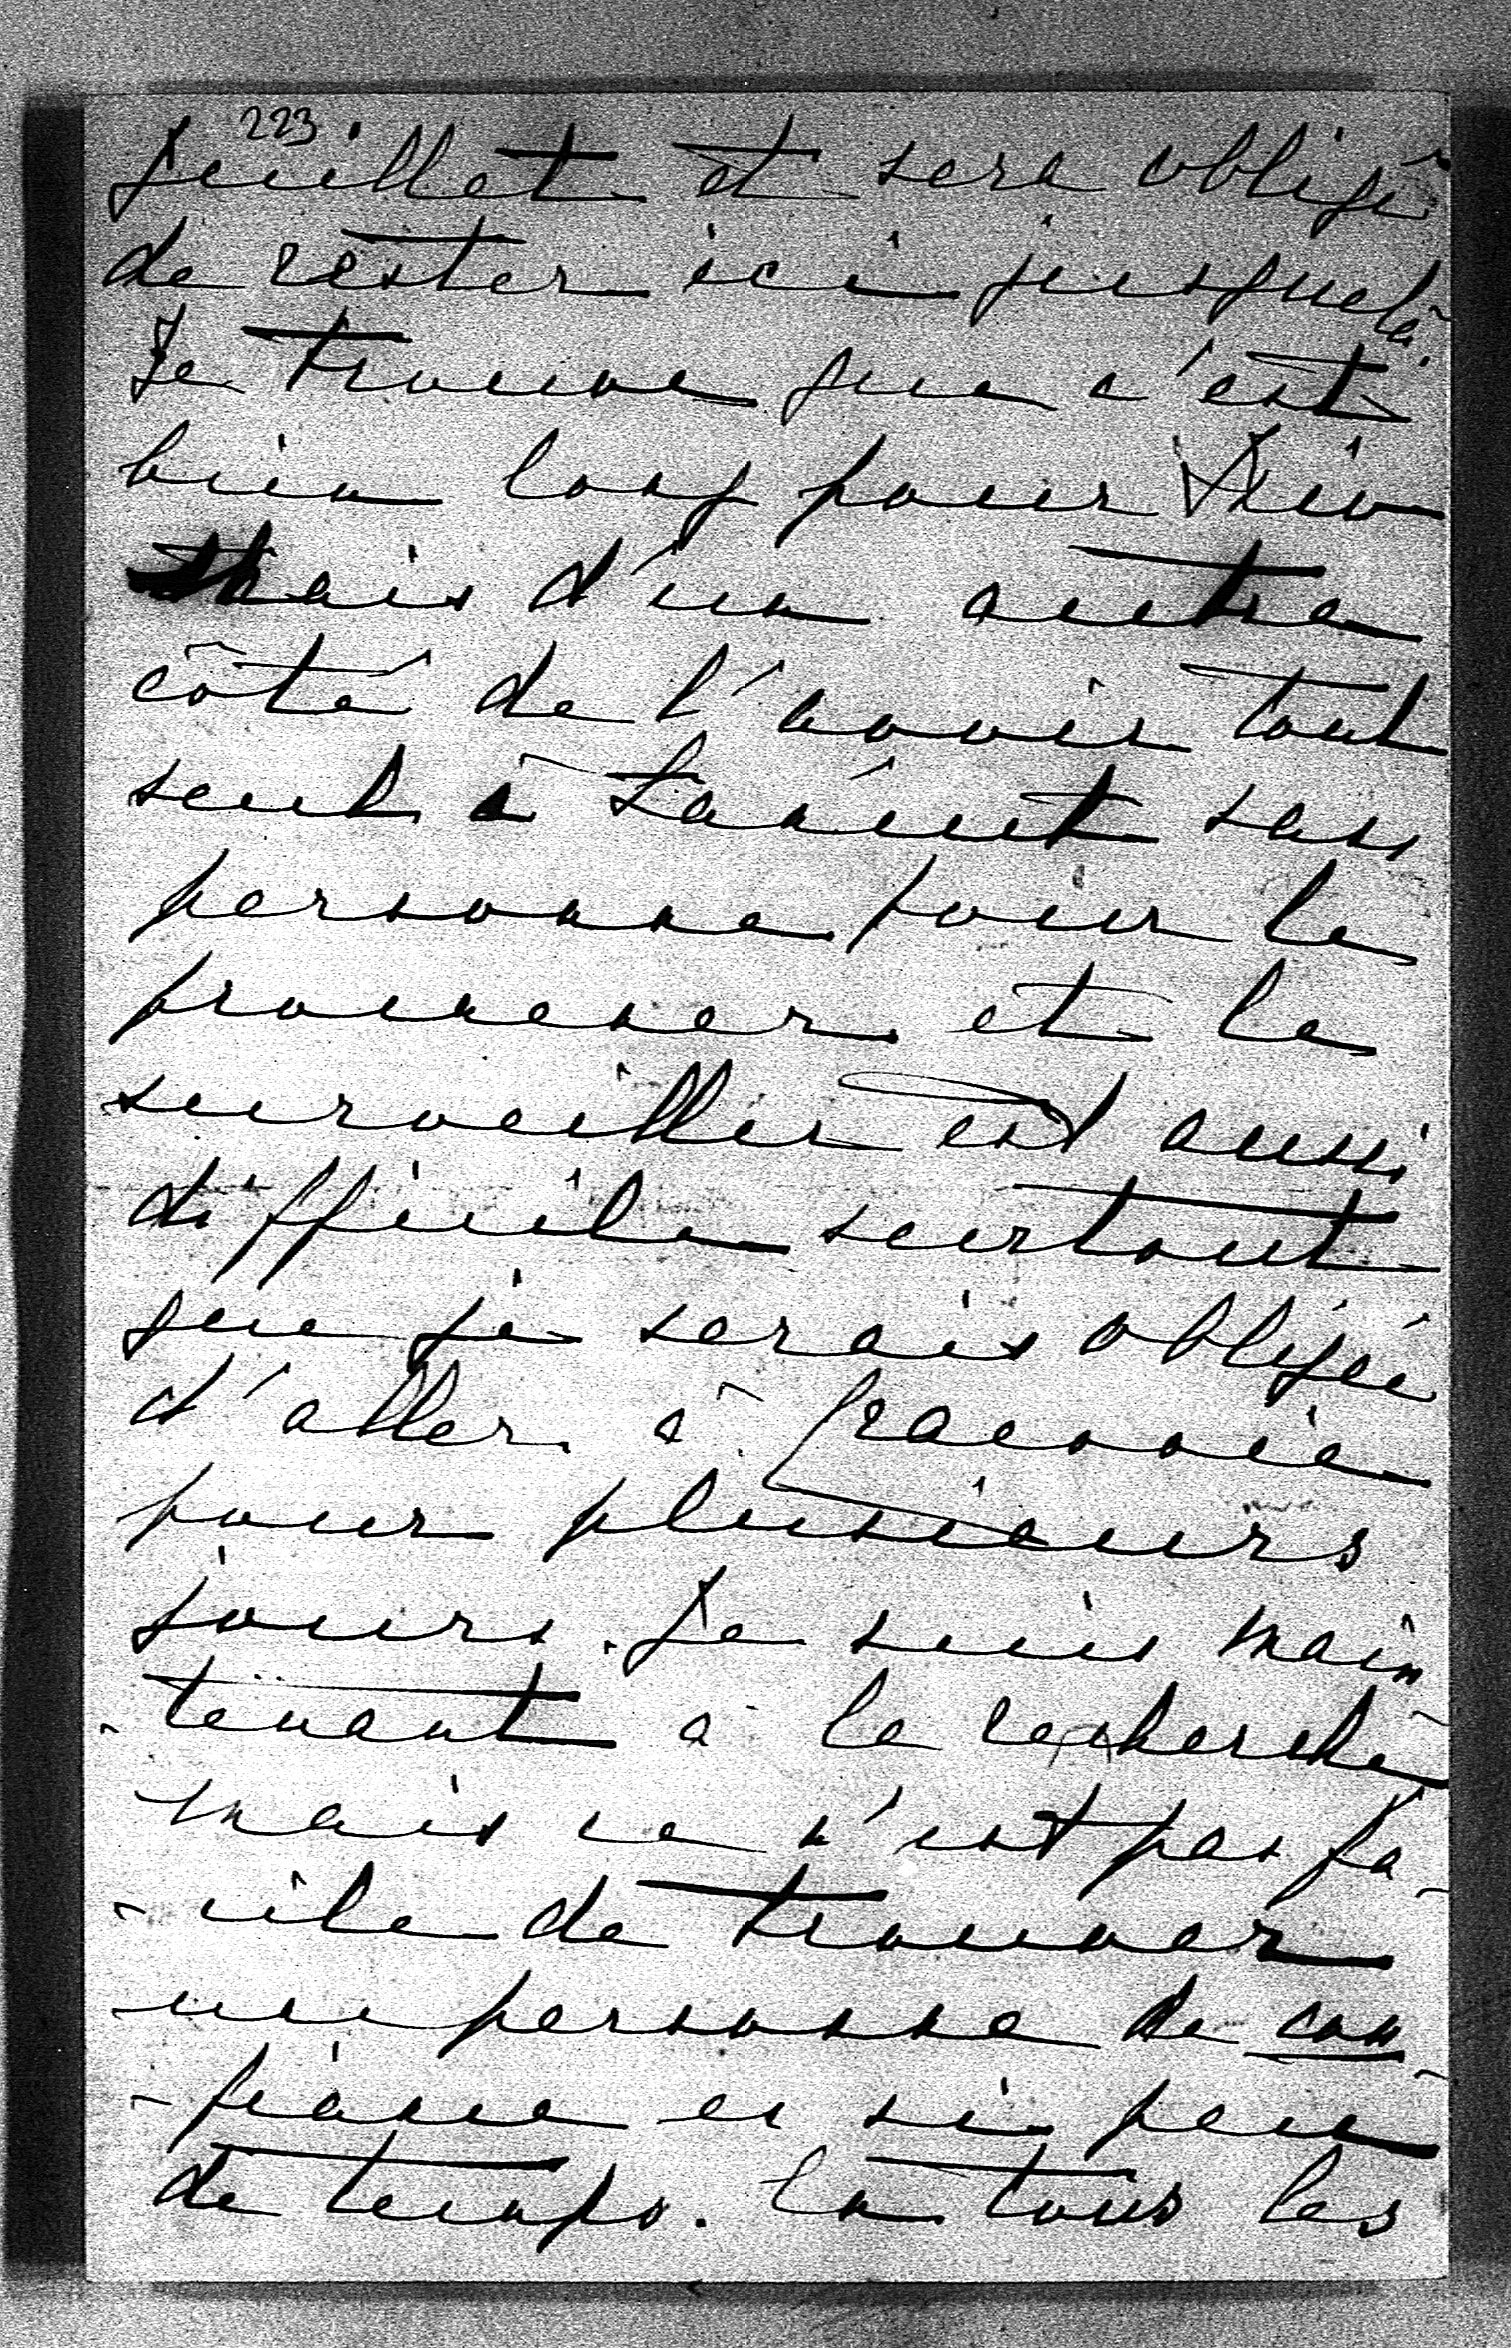 223
Juillet et sera obligé
de rester ici jusque là.
Je trouve que c'est
bien long pour
mais d'un autre
côté de l'avoir tout
seul à Łańcut sans
personne pour le
promener et le
surveiller est aussi
difficile surtout
que je serais obligée
d'aller à Cracovie
pour plusieurs
jours. Je suis main-
-tenant à la recherche
mais ce n'est pas fa-
-cile de trouver
une personne de con-
-fiance en si peu
de temps. En tous les